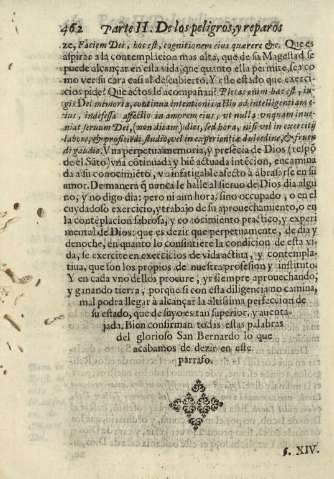 462 Parte II. De los peligros, y reparos
ze, Faciem Dei, hoc est, cognitionem eius quærere &c. Que es
aspirar a la contemplacion mas alta, que de su Magestad se
puede alcançar en esta vida, que quanto ella permite, es co
mo ver su cara casi al descubierto. Y este estado que exerci-
cios pide? Que actos le acompañan? Pietas enim hæc est, iu-
gis Dei memoria, continua intentionis
tius, indefessa affectio in amorem eius, ut nulla vnquam inue-
niat seruum Dei, (non dicam) dies, sed hora, nisi vel in exercitij
labore, & proficiendi studio, vel in experientiæ dulcedine, & fruen
di gaudio. Vna perpetua memoria, y presēcia de Dios (respō
de el Sāto) vna cōtinuada y biē actuada intēcion, encamina
da a su conocimiēto, vn infatigable afecto à abrasarse en su
amor. De manera q̄ nunca le halle al sieruo de Dios dia algu
no, y no digo dia: pero ni aun hora, sino ocupado, o en el
cuydadoso exercicio, y trabajo de su aprouechamiento, o en
la contēplacion sabrosa, y conocimiento practico, y experi
mental de Dios: que es dezir que perpetuamente, de dia y
denoche, en quanto lo consintiere la condicion de esta vi-
da, se exercite en exercicios de vida actiua, y contempla-
tiua, que son los propios de nuestra profesion y instituto.
Y en cada vno dellos procure, yr siempre aprouechando,
y ganando tierra, porque si con esta diligencia no camina,
mal podra llegar à alcançar la altissima perfeccion de
su estado, que de suyo es tan superior, y auenta-
jada. Bien confirman todas estas palabras
del glorioso San Bernardo lo que
acabamos de dezir en este
parrafo.
§. XIV.